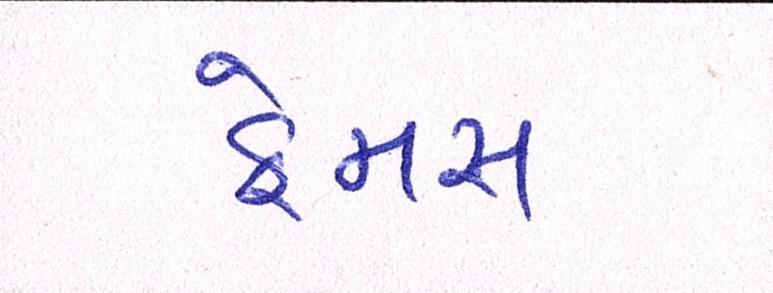 ફેમસ